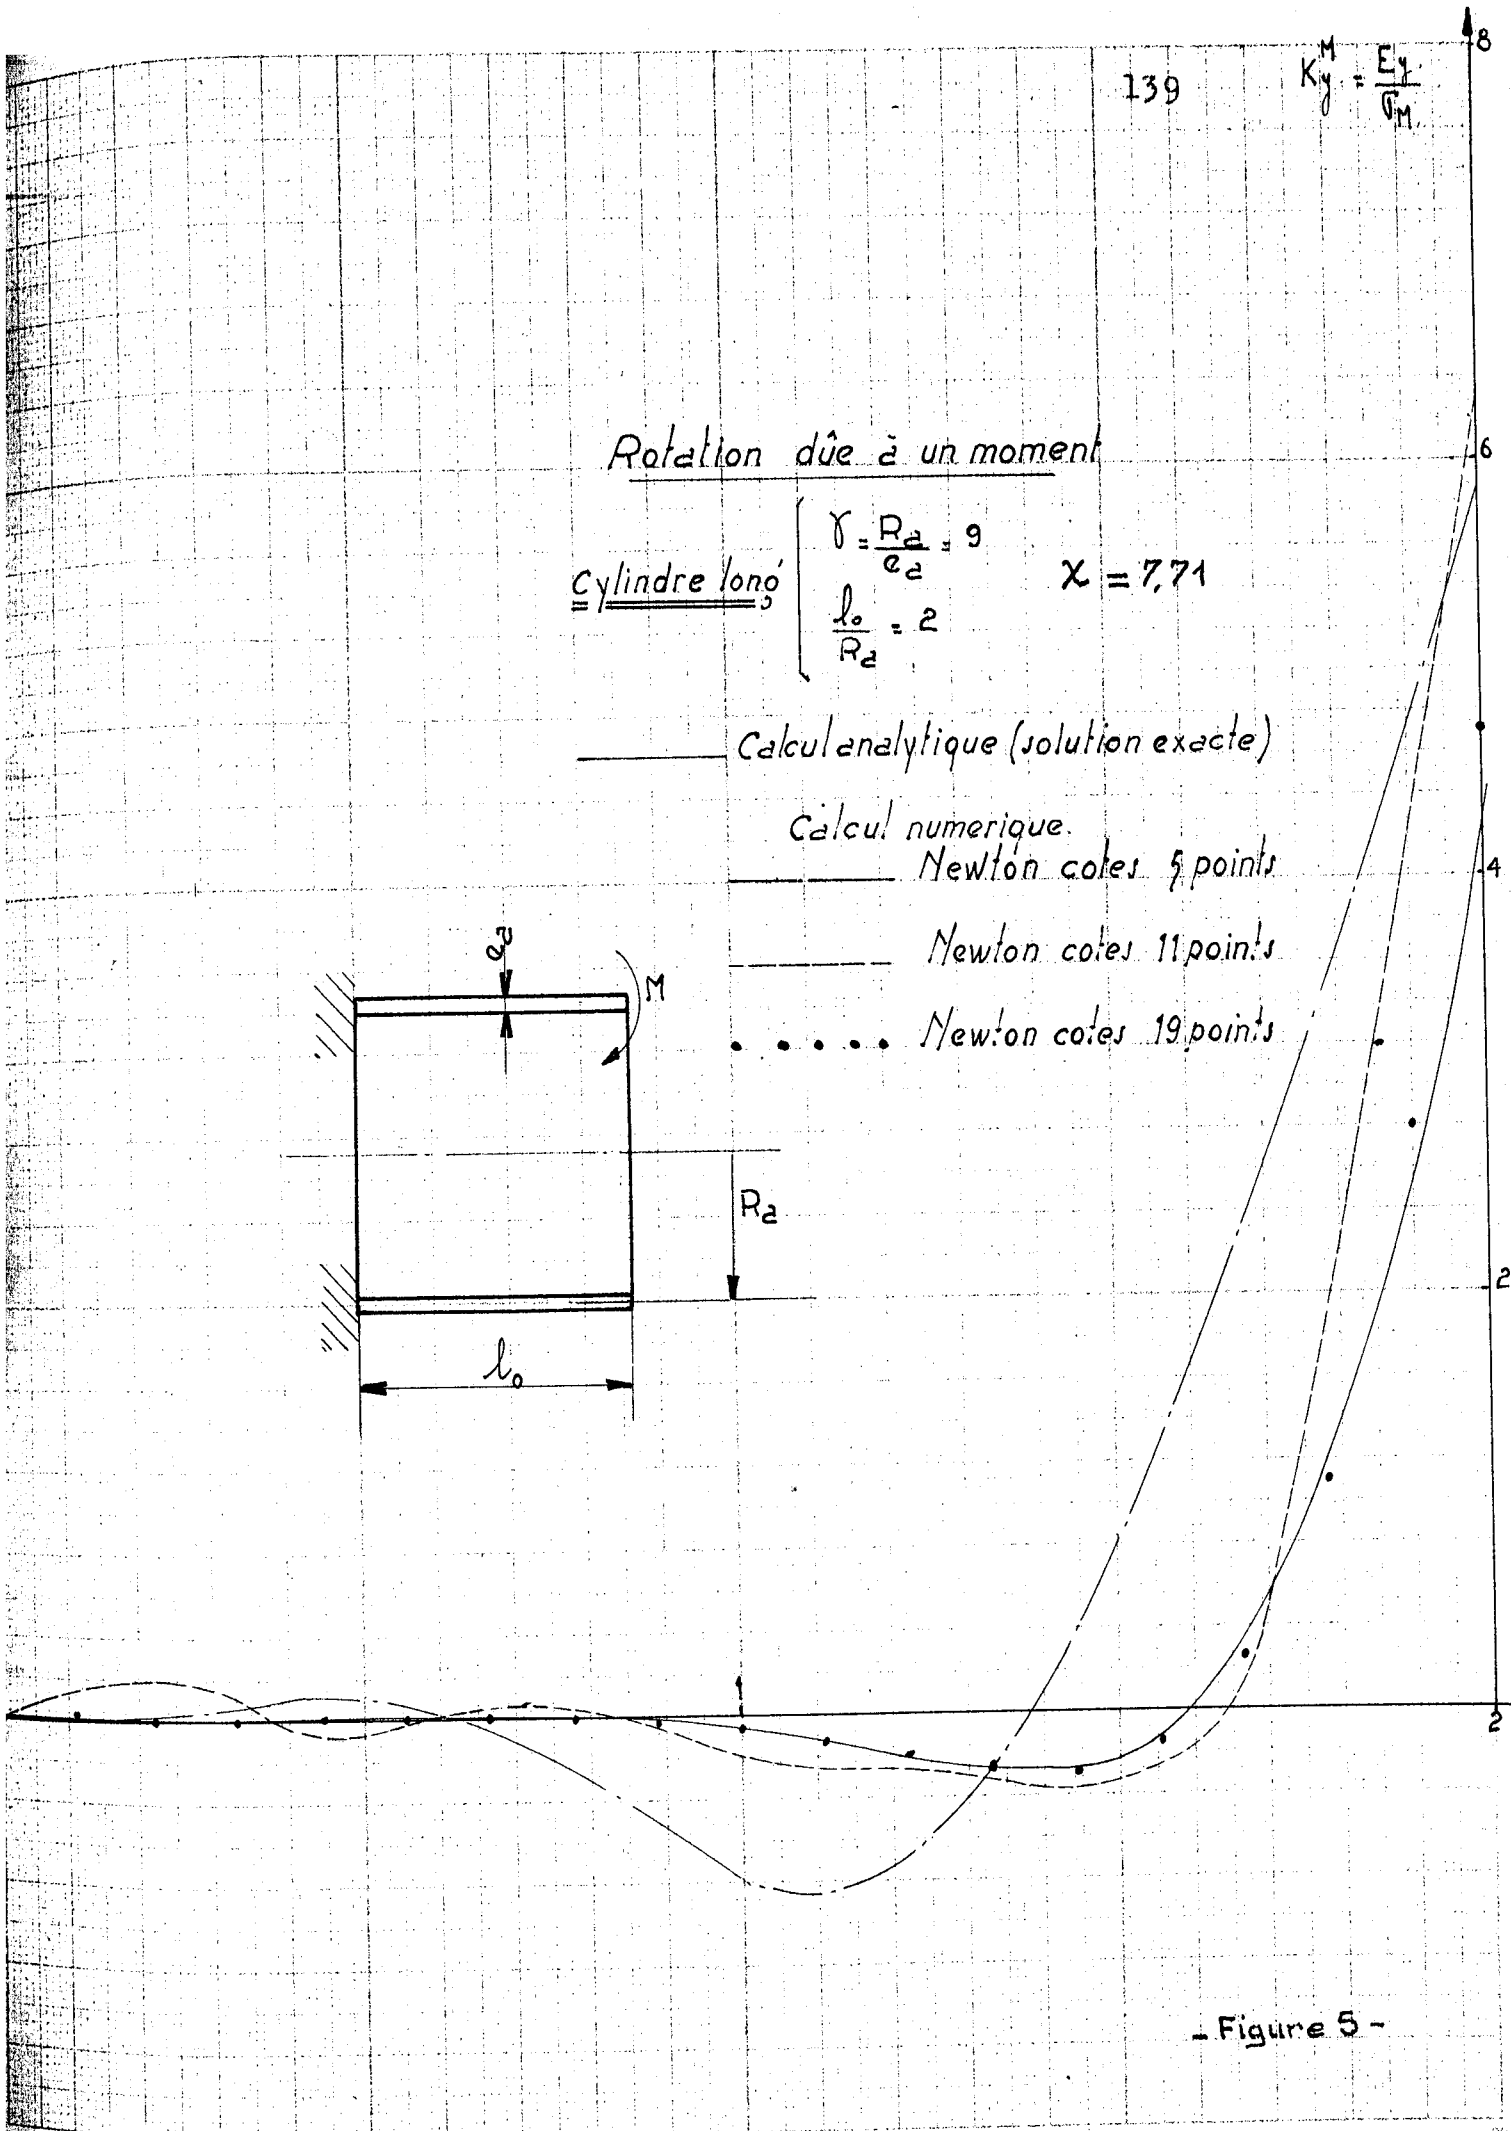 8
139
K_y^M = Ey / σM
Rotation dûe à un moment
6
γ = Ra / ea = 9
Cylindre long
χ = 7,71
l₀ / Ra = 2
Calcul analytique (solution exacte)
Calcul numerique.
Newton cotes 5 points
4
Newton cotes 11 points
ea
M
Newton cotes 19 points
Ra
2
l₀
1
2
- Figure 5 -